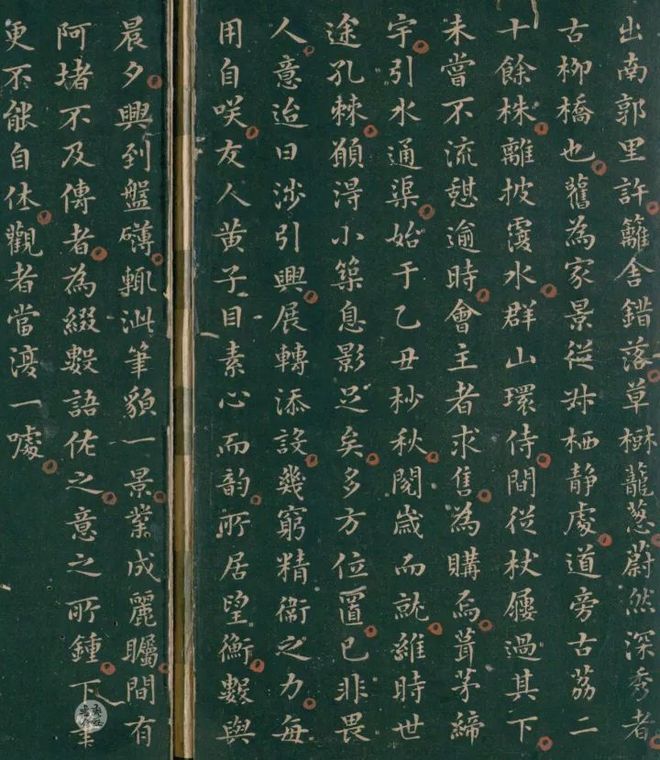 出南郭里許籬舍錯落草樹蘢蔥蔚然深秀者
古柳橋也舊為家景從叔栖靜處道旁古荔二
十餘株離披覆水群山環侍間從杖屨過其下
未嘗不流憩逾時會主者求售為購焉葺茅締
宇引水通渠始于乙丑杪秋閱歲而就維時世
途孔棘願得小築息影足矣多方位置已非畏
人意迨日涉引興展轉添設幾窮精衛之力每
用自咲友人黃子目素心而韵所居望衡數與
晨夕興到盤礴輒泚筆貌一景業成麗矚間有
阿堵不及傳者為綴數語佐之意之所鍾下筆
更不能自休觀者當復一噱